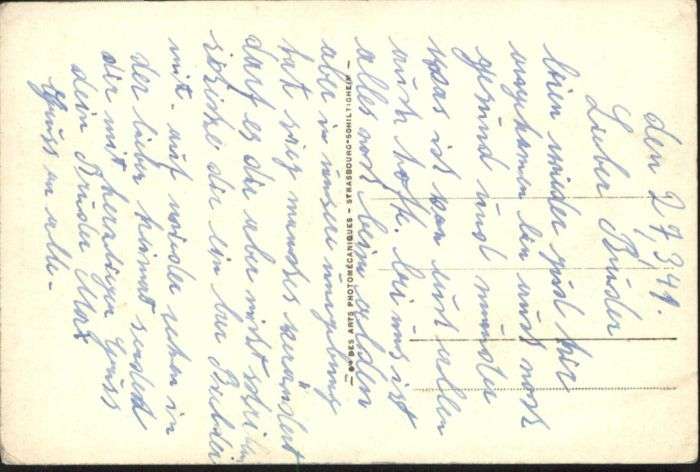 den 27,3 41.
Lieber Brüder
bin wieder gut hir
angekomen bin auch noch
gesund und munter
was ich von euch allen
auch hoffe. bei uns ist
alles noch beim alden
aber in unsere umgebung
hat sieg manches verändert
darf es dir aber nicht schreiben
schicke dir ein bar Bilder
mit. auf wieder sehen in
der liben Heimat sendet
dir mit herzligen Gruss
dein Brüder Max
Gruss an alle-
— Cie DES ARTS PHOTOMÉCANIQUES - STRASBOURG-SCHILTIGHEIM —